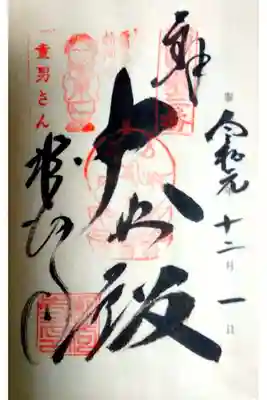 奉拝
令和元 十二月一日
大悲殿
童男さん
粉河寺